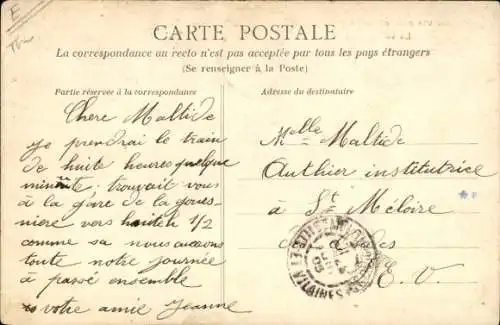 CARTE POSTALE
La correspondance au recto n'est pas acceptée par tous les pays étrangers
(Se renseigner à la Poste)
Partie réservée à la correspondance
Chere Maltide
je prendrai le train
de huite heures quelque
minute; trouvait vous
à la gare de la goues-
niere vers huitch 1/2
comme sa nous aurons
toute notre journée
à passé ensemble
votre amie Jeanne
Adresse du destinataire
Melle Maltide
Authier institutrice
à St Méloire
des Ondes
E. V.